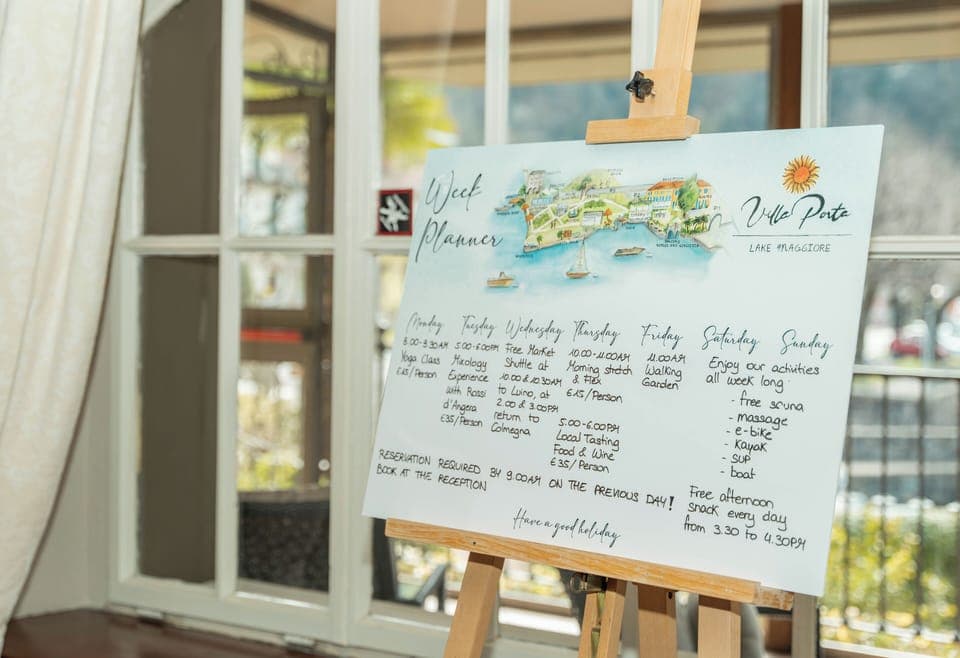 Week
Planner
Villa Porta
LAKE MAGGIORE
Monday
8.00-8.30AM
Yoga Class
€15/Person
Tuesday
5.00-6.00PM
Mixology
Experience
with Rossi
d'Angera
€35/Person
Wednesday
Free Market
Shuttle at
10.00 & 10.30AM
to Luino, at
2.00 & 3.00PM
return to
Colmegna
Thursday
10.00-11.00AM
Morning stretch
& Flex
€15/Person
5.00-6.00PM
Local Tasting
Food & Wine
€35/Person
Friday
11.00AM
Walking
Garden
Saturday Sunday
Enjoy our activities
all week long:
- free sauna
- massage
- e-bike
- kayak
- SUP
- boat
Free afternoon
snack every day
from 3.30 to 4.30PM
RESERVATION REQUIRED BY 9:00AM ON THE PREVIOUS DAY!
BOOK AT THE RECEPTION
Have a good holiday